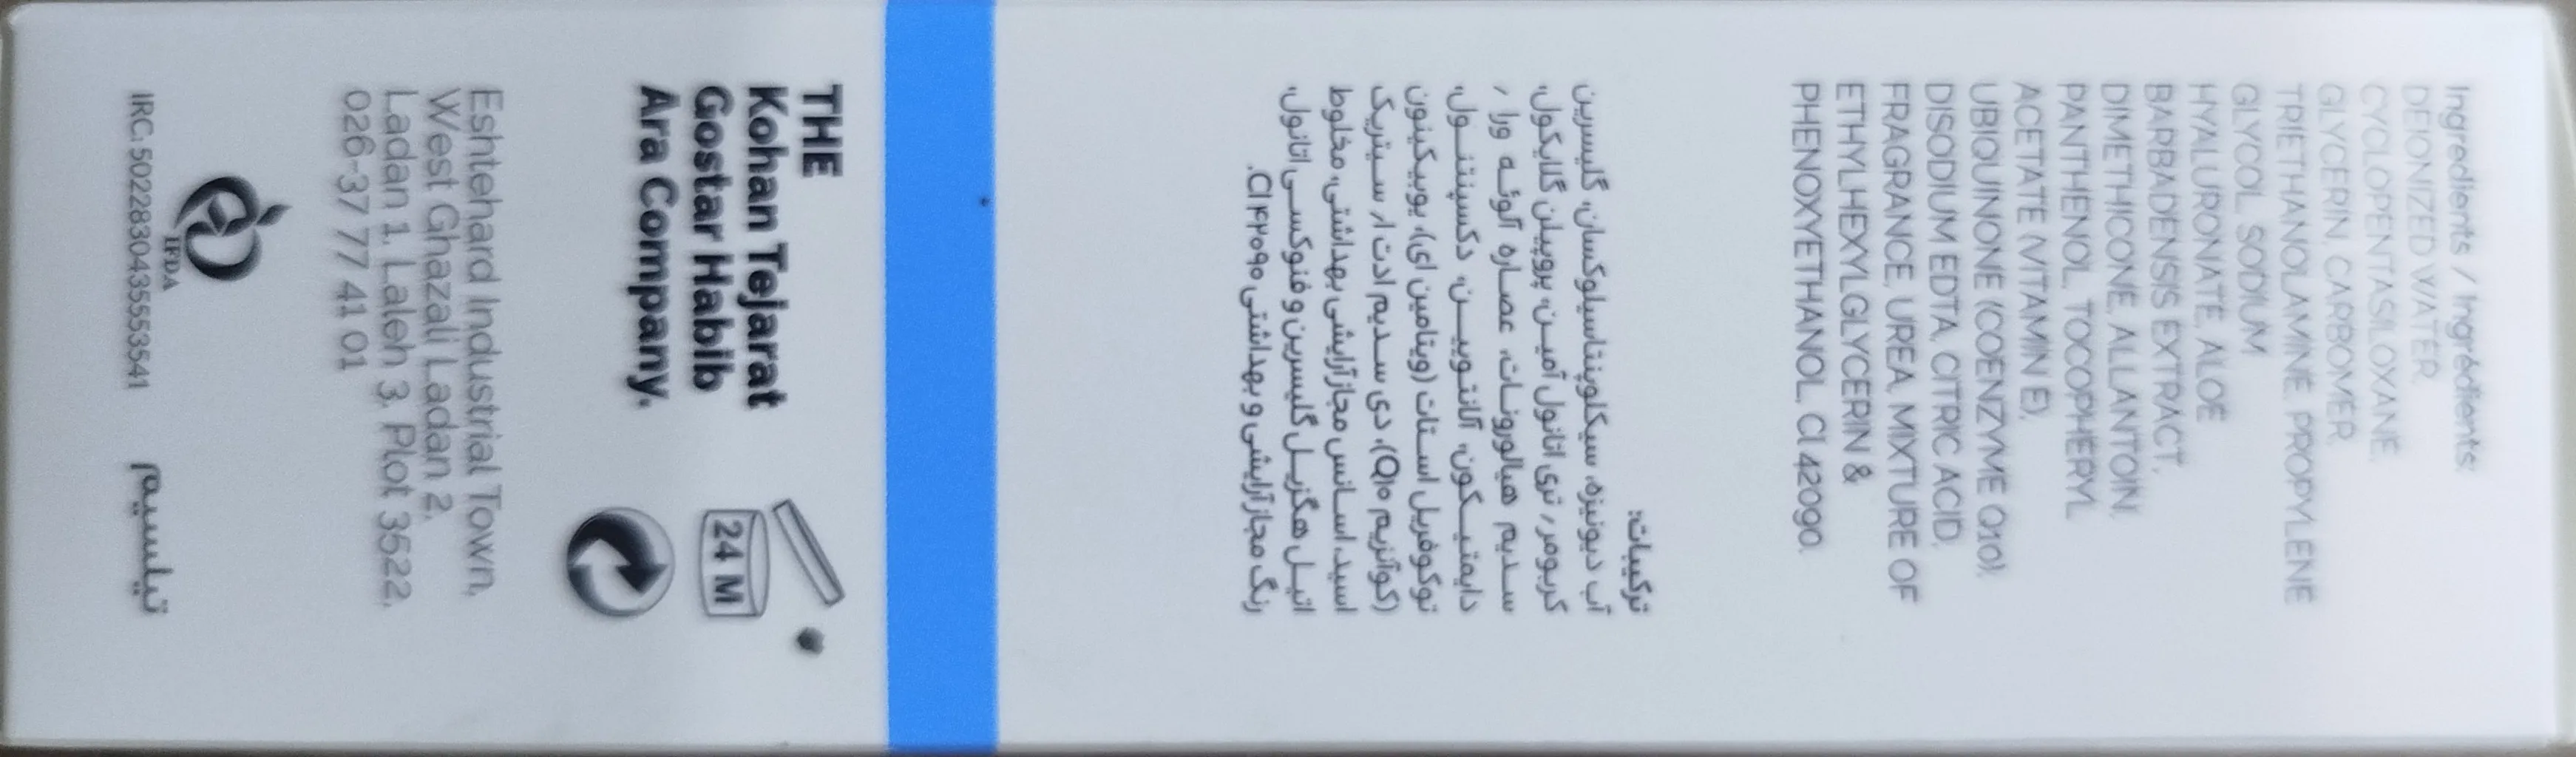 Ingredients / Ingrédients:
DEIONIZED WATER,
CYCLOPENTASILOXANE,
GLYCERIN, CARBOMER,
TRIETHANOLAMINE, PROPYLENE
GLYCOL, SODIUM
HYALURONATE, ALOE
BARBADENSIS EXTRACT,
DIMETHICONE, ALLANTOIN,
PANTHENOL, TOCOPHERYL
ACETATE (VITAMIN E),
UBIQUINONE (COENZYME Q10),
DISODIUM EDTA, CITRIC ACID,
FRAGRANCE, UREA, MIXTURE OF
ETHYLHEXYLGLYCERIN &
PHENOXYETHANOL, CI 42090.
ترکیبات:
آب دیونیزه، سیکلوپنتاسیلوکسان، گلیسرین
کربومر، تری اتانول آمیـن، پروپیلن گلایکول،
سـدیم هیالورونـات، عصـاره آلوئـه ورا ،
دایمتیـکون، آلانتـوییـن، دکسپنتنـول،
توکوفریل استات (ویتامین ای)، یوبیکینون
(کوآنزیم Q۱۰)، دی سـدیم ادتـا، سـیتریک
اسید، اسـانس مجاز آرایشی بهداشتی، مخلوط
اتیـل هگزیـل گلیسرین و فنوکسـی اتانول،
رنگ مجاز آرایشی و بهداشتی CI ۴۲۰۹۰.
THE
Kohan Tejarat
Gostar Habib
Ara Company.
24 M
Eshtehard Industrial Town,
West Ghazali Ladan 2,
Ladan 1, Laleh 3, Plot 3522,
026-37 77 41 01
IFDA
IRC: 5022883043555541
تیلسیم